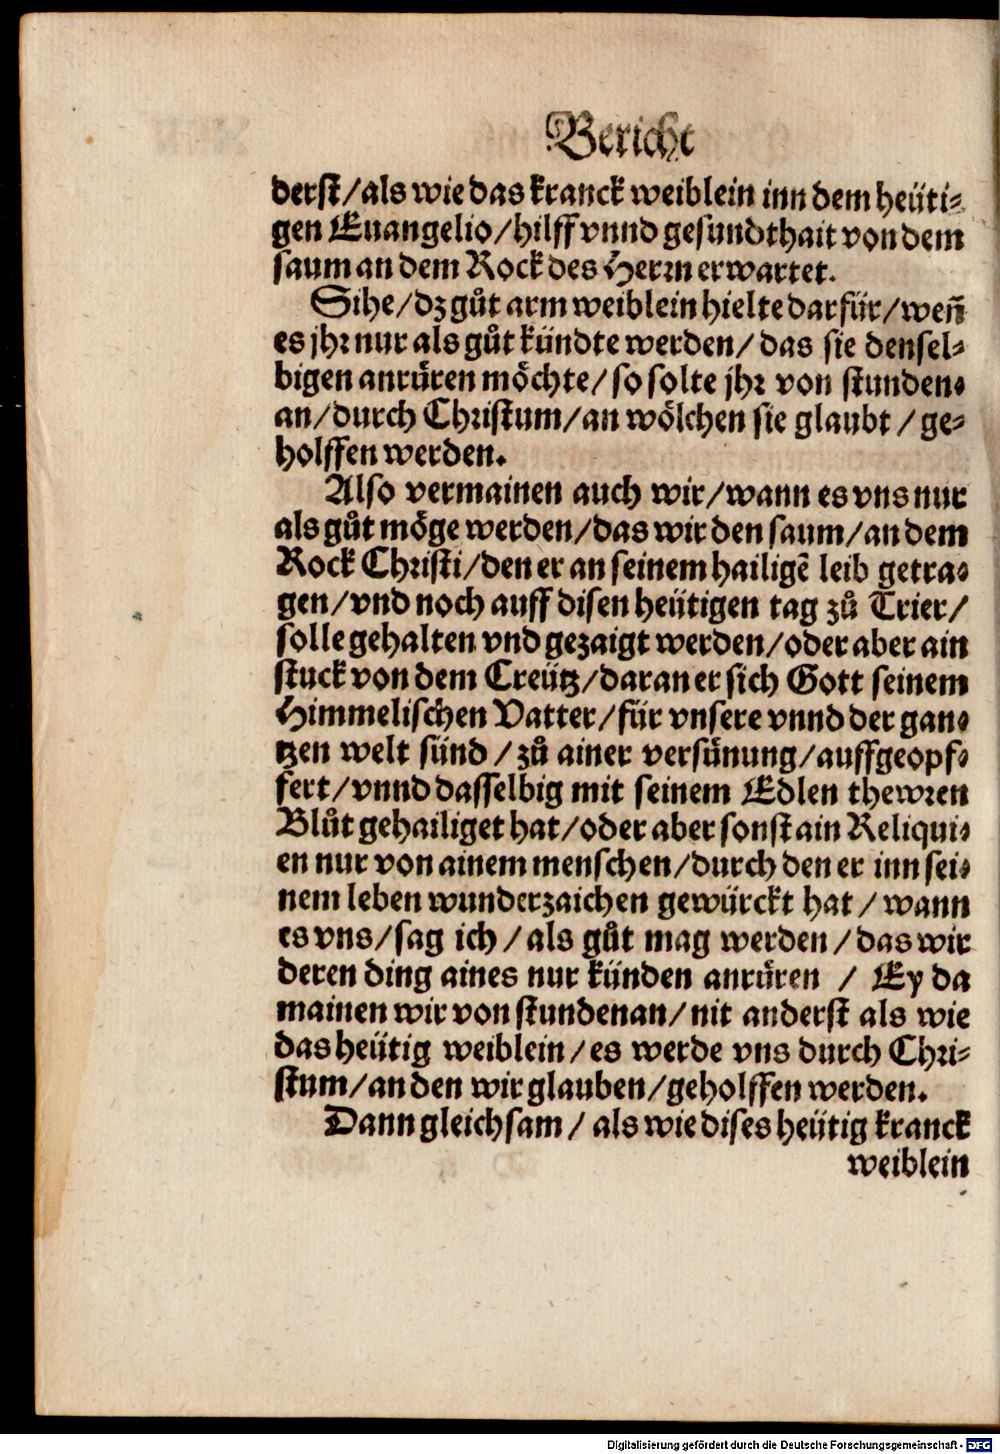 Bericht
derst/als wie das kranck weiblein inn dem heüti-
gen Euangelio/hilff vnnd gesundthait von dem
saum an dem Rock des Herrn erwartet.
Sihe/dz gůt arm weiblein hielte darfür/weñ
es jhr nur als gůt kündte werden/das sie densel-
bigen anrüren möchte/so solte jhr von stunden-
an/durch Christum/an wölchen sie glaubt/ge-
holffen werden.
Also vermainen auch wir/wann es vns nur
als gůt möge werden/das wir den saum/an dem
Rock Christi/den er an seinem hailigẽ leib getra-
gen/vnd noch auff disen heütigen tag zů Trier/
solle gehalten vnd gezaigt werden/oder aber ain
stuck von dem Creütz/daran er sich Gott seinem
Himmelischen Vatter/für vnsere vnnd der gan-
tzen welt sünd/zů ainer versünung/auffgeopf-
fert/vnnd dasselbig mit seinem Edlen thewren
Blůt gehailiget hat/oder aber sonst ain Reliqui-
en nur von ainem menschen/durch den er inn sei-
nem leben wunderzaichen gewürckt hat/wann
es vns/sag ich/als gůt mag werden/das wir
deren ding aines nur künden anrüren / Ey da
mainen wir von stundenan/nit anderst als wie
das heütig weiblein/es werde vns durch Chri-
stum/an den wir glauben/geholffen werden.
Dann gleichsam/als wie dises heütig kranck
weiblein
Digitalisierung gefördert durch die Deutsche Forschungsgemeinschaft - DFG